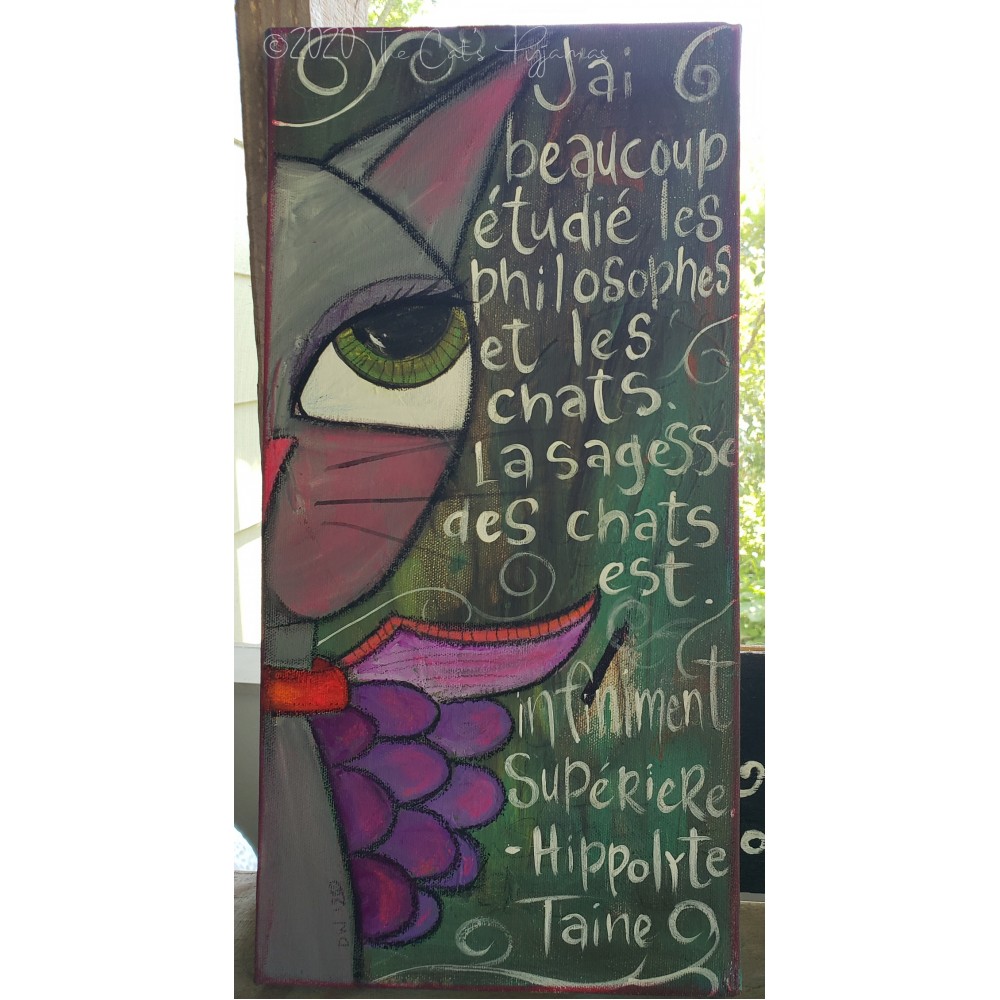 ©2020 The Cat's Pyjamas
Jai
beaucoup
étudié les
philosophes
et les
chats.
La sagesse
des chats
est.
infiniment
Supéricre.
- Hippolyte
Taine